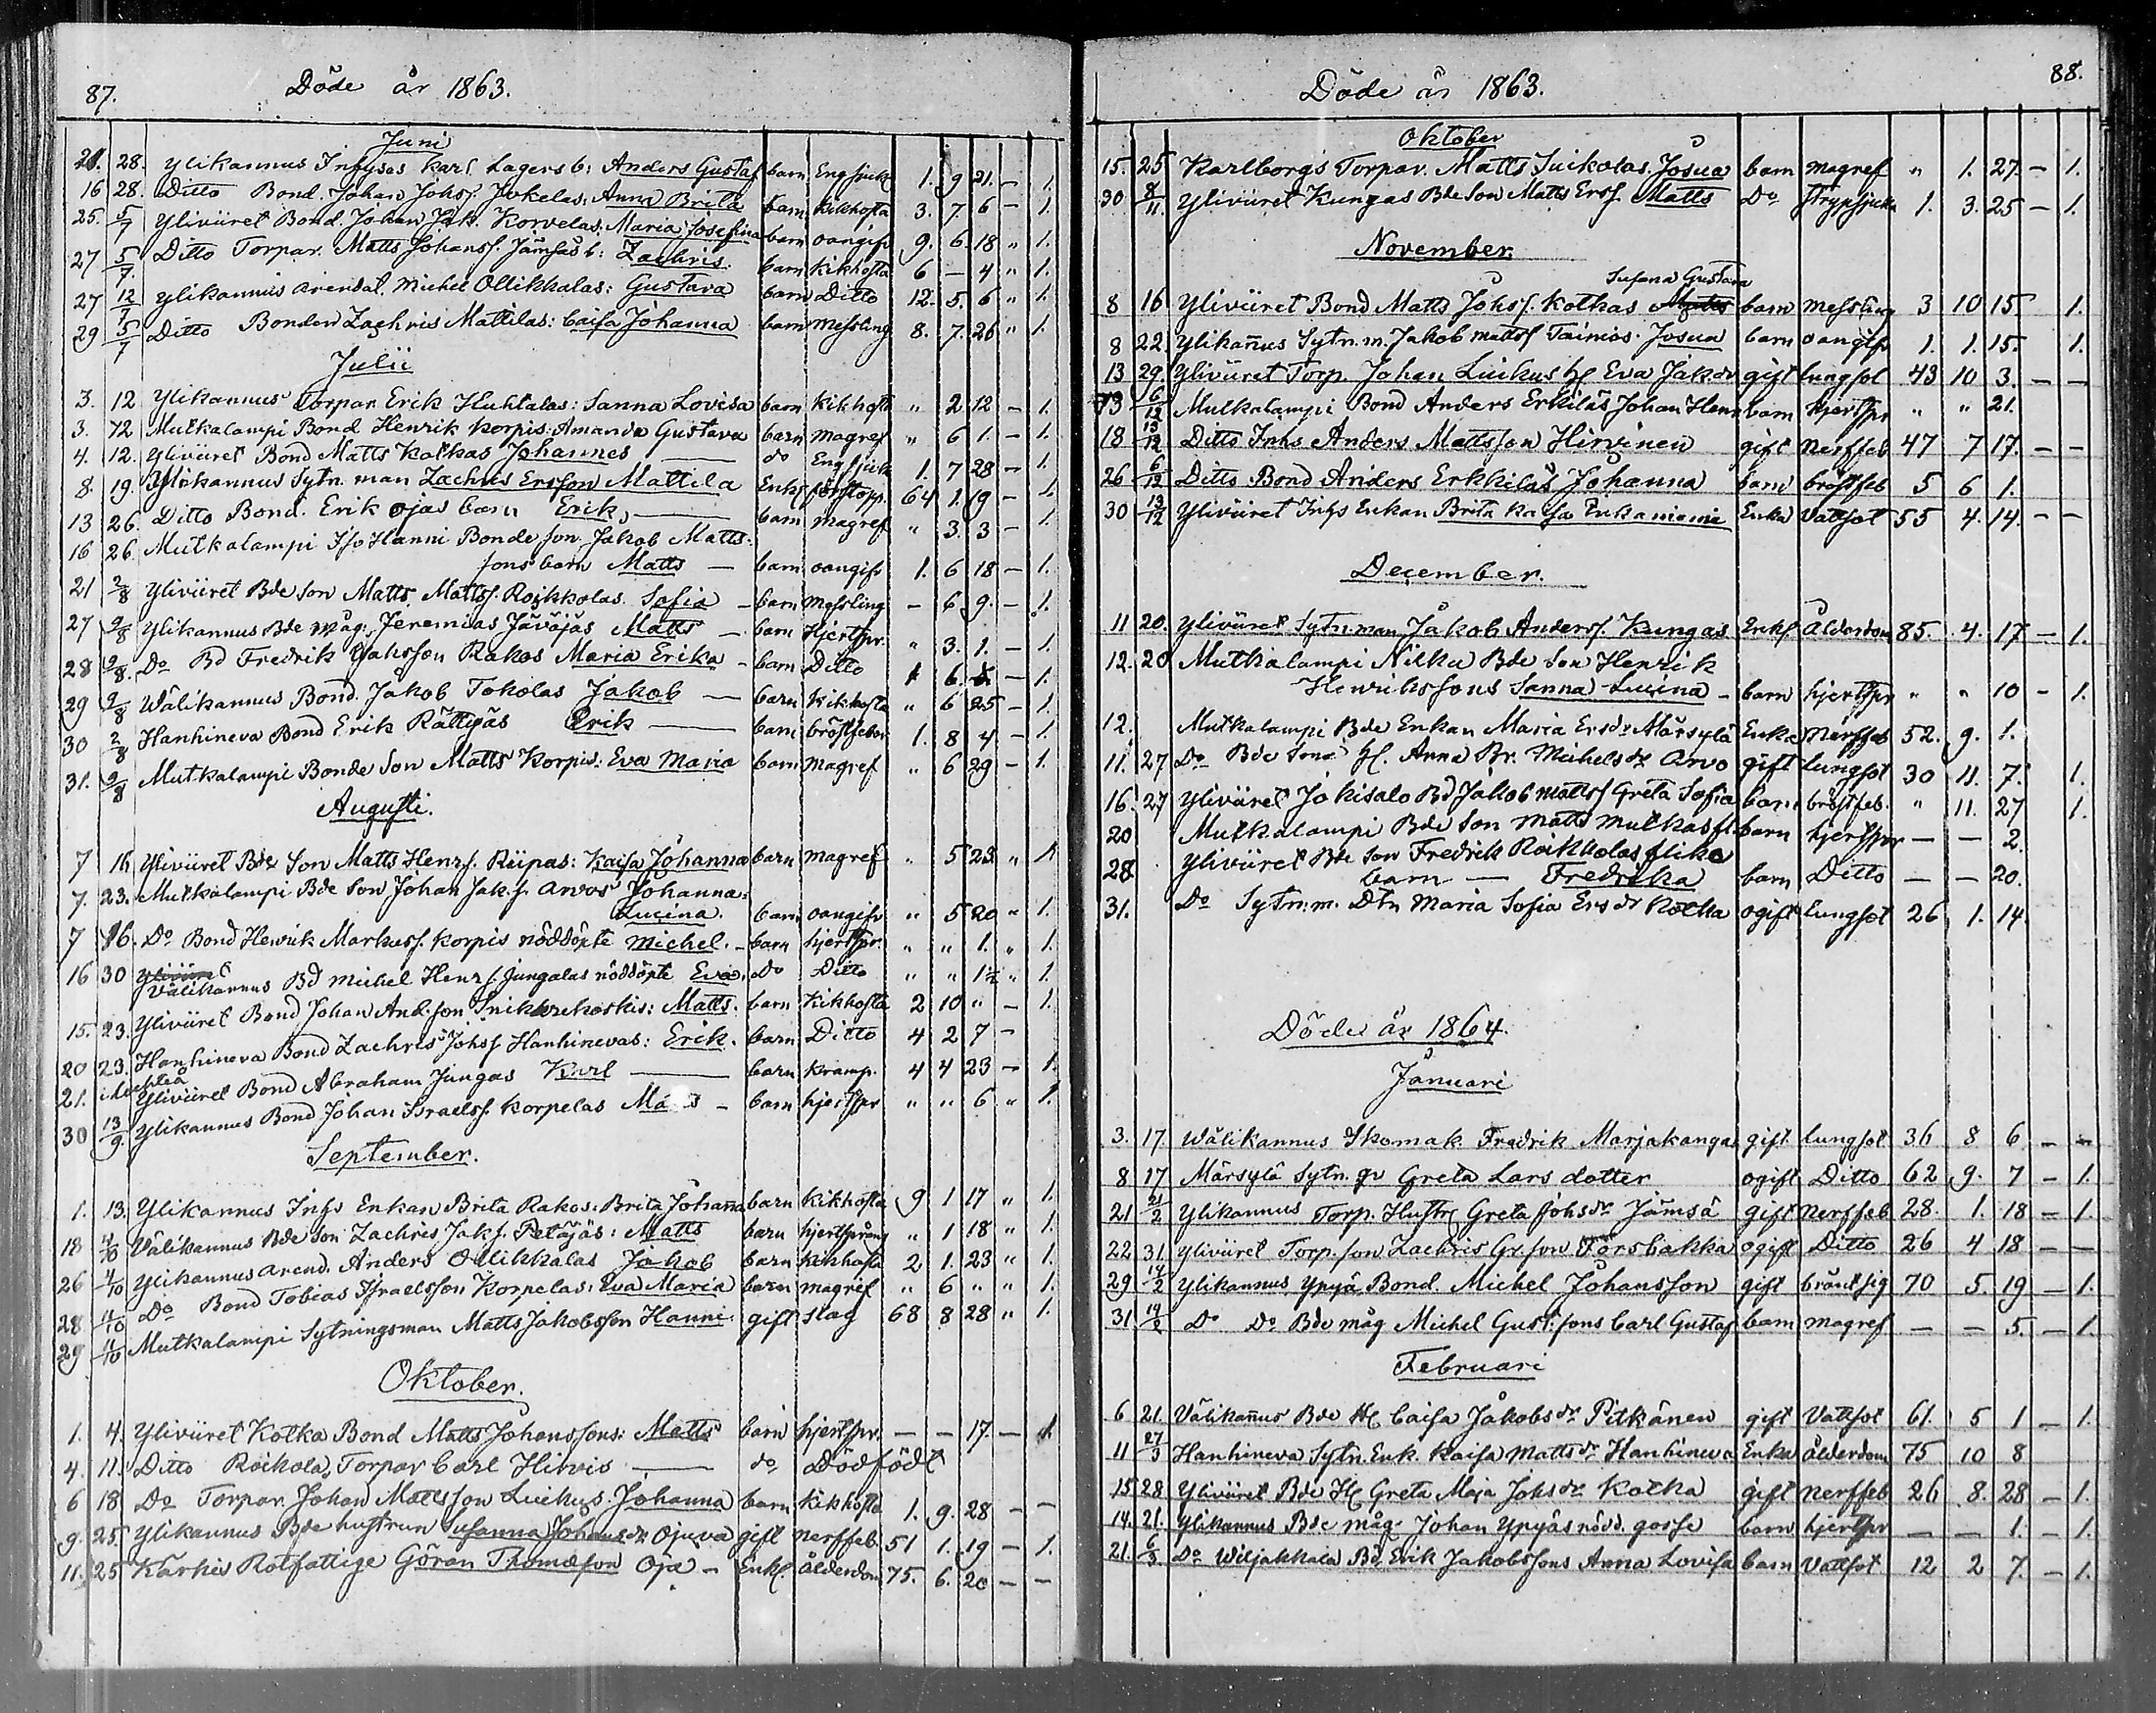 87.
Döde år 1863.
Juni
21. 28. Ylikannus Karl Lagers b: Anders Gustaf barn Eng sjuk 1. 9 21. – 1.
16 28. Ditto Bond. Johan Johss. Jokelas: Anna Brita barn kikhosta 3. 7. 6 – 1.
25. 5/7 Yliviiret Bond Johan Jak. Korvelas: Maria Josefina barn oangifv 9. 6. 18 " 1.
27 5/7 Ditto Torpar. Matts Johanss. Jämsäs b: Zachris. barn kikhosta 6 – 4 " 1.
27 12/7 Ylikannus arendat. Michel Ollikkalas: Gustava barn Ditto 12. 5. 6 " 1.
29 5/7 Ditto Bonden Zachris Mattilas: Caisa Johanna barn messling 8. 7. 26 " 1.
Julii
3. 12 Ylikannus Torpar. Erik Huhtalas: Sanna Lovisa barn kikhosta " 2 12 – 1.
3. 12 Mutkalampi Bond Henrik Korpis: Amanda Gustava barn magref " 6 1. – 1.
4. 12. Yliviiret Bond Matts Kotkas Johannes — do Eng sjuk 1. 7 28 – 1.
8. 19. Ylikannus Sytn. man Zachris Ersson Mattila Enkl förstopp. 64 1. 19 – 1.
13 26. Ditto Bond. Erik Ojas barn Erik, — barn magref " 3. 3 – 1.
16 26. Mutkalampi Iso Hanni Bonde son Jakob Matts-
sons barn Matts — barn oangifv 1. 6 18 – 1.
21 2/8 Yliviiret Bde son Matts Mattss. Roikkolas Sofia – barn messling – 6 9. – 1.
27 2/8 Ylikannus Bde måg: Jeremias Jäväjäs Matts – barn hjertspr. " 3. 1. – 1.
28 2/8. Do Bd Fredrik Rakos Maria Erika – barn Ditto 1 6 – 1.
29 2/8 Wälikannus Bond. Jakob Tokolas Jakob — barn kikhosta " 6 25 – 1.
30 2/8 Hanhineva Bond Erik Rättyäs Erik — barn bröstfeber 1. 8 4 – 1.
31. 2/8 Mutkalampi Bonde Son Matts Korpis: Eva Maria barn magref " 6 29 – 1.
Augusti.
7 16 Yliviiret Bde Son Matts Henrs. Riipas: Kaisa Johanna barn magref " 5 23 " 1.
7. 23. Mutkalampi Bde Son Johan Jak.s. Arvos Johanna
Lucina. barn oangifv " 5 20 " 1.
7 16. Do Bond Henrik Markuss. Korpis nöddöpte Michel. – barn hjertspr. " " 1. " 1.
16 30 Yliviiret Välikannus Bd Michel Henrs. Jungalas nöddöpte Eva. Do Ditto " " 1½ " 1.
15. 23. Yliviiret Bond Johan And.son Matts. barn kikhosta 2 10 " – 1.
20 23. Hanhineva Bond Zachris Johss Hanhinevas: Erik. barn Ditto 4 2 7 –
21. Yliviiret Bond Abraham Jungas Karl — barn kramp. 4 4 23 – 1.
30 13/9. Ylikannus Bond Johan Israelss. Korpelas – barn hjertspr " " 6 " 1.
September.
1. 13. Ylikannus Inhs Enkan Brita Rakos: Brita Johanna barn kikhosta 9 1 17 " 1.
18 4/10 Välikannus Bde son Zachris Jaks. Petäjäs: Matts barn hjertsprång " 1 18 " 1.
26 4/10 Ylikannus arend. Anders Ollikkalas Jakob barn kikhosta 2 1. 23 " 1.
28 4/10 Do Bond Tobias Israelsson Korpelas: Eva Maria barn magref " 6 " " 1.
29 4/10 Mutkalampi Sytningsman Matts Jakobsson Hanni gift slag 68 8 28 " 1.
Oktober.
1. 4. Yliviiret Kotka Bond Matts Johanssons: Matts barn hjertspr. – – 17. – 1.
4. 11. Ditto Roikola, Torpar Carl Hirvis — do Dödfödt
6 18 Do Torpar. Johan Mattsson Luikus Johanna barn kikhosta 1. 9. 28 – –
9. 25. Ylikannus Bde hustrun Susanna Johansdr Ojuva gift nerffeb. 51 1. 19 – 1.
11. 25 Kärkis Rotfattige Göran Thomasson Oja – Enkl ålderdom 75. 6. 20 – –
88.
Döde år 1863.
Oktober
15. 25 Karlborgs Torpar. Matts Luikolas. Josua barn magref " 1. 27. – 1.
30 8/11. Yliviiret Kungas Bde son Matts Erss. Matts Do strypsjuka 1. 3. 25 – 1.
November.
Susana Gustava
8 16 Yliviiret Bond Matts Johss. Kotkas Matts barn messling 3 10 15. 1.
8 22. Ylikannus Sytn.m. Jakob Mattss Taimios. Josua barn oangifv 1. 1. 15. 1.
13 29. Yliviiret Torp. Johan Luikus H Eva Jak.dr gift lungsot 43 10 3. – –
13 6/12 Mutkalampi Bond Anders Erkiläs Johan Henr barn hjertspr " " 21.
18 13/12 Ditto Inhs Anders Mattsson Hirvinen gift nerffeb 47 7 17. – –
26 6/12 Ditto Bond Anders Erkkiläs Johanna barn bröstfeb 5 6 1.
30 13/12 Yliviiret Inhs Enkan Brita Kaisa Enka vattsot 55 4. 14. – –
December.
11 20. Yliviiret Sytn.man Jakob Anderss. Kungas Enkl Ålderdom 85. 4. 17 – 1.
12. 20 Mutkalampi Niiku Bde Son Henrik
Henrikssons Sanna Lucina – barn hjertspr " " 10 – 1.
12. Mutkalampi Bde Enkan Maria Ersdr Märsylä Enka Nerffeb 52. 9. 1.
11. 27 Do Bde Sons H. Anna Br. Michelsdr Arvo gift lungsot 30 11. 7. 1.
16. 27 Yliviiret Jokisalo Bd Jakob Mattss Greta Sofia barn bröstfeb. " 11. 27 1.
20 Mutkalampi Bde Son Matts Mutkas fl. barn hjertspr – – 2.
28 Yliviiret Bde Son Fredrik Roikkolas flicko
barn — Fredrika barn Ditto – – 20.
31. Do Sytn.m. Dtr Maria Sofia Ersdr Kotka ogift lungsot 26 1. 14.
Döde år 1864.
Januari
3. 17. Wälikannus Skomak. Fredrik Marjakangas gift lungsot 36 8 6 – –
8 17 Märsylä Sytn. qv Greta Lars dotter ogift Ditto 62 9. 7 – 1.
21 21/2 Ylikannus Torp. Hustr Greta Johsdr Jämsä gift nerffeb 28. 1. 18 – 1.
22 31. Yliviiret Torp. son Zachris Gr.son Forsbakka ogift Ditto 26 4 18 – –
29 14/2 Ylikannus Ypyä Bond. Michel Johansson gift bröstsig 70 5. 19 – 1.
31 14/2 Do Do Bde måg Michel Gust:sons Carl Gustaf barn magref – – 5. – 1.
Februari
6 21. Välikannus Bde H Caisa Jakobsdr Pitkänen gift Vattsot 61. 5 1 – 1.
11 27/3 Hanhineva Sytn. Enk. Kaisa Mattsdr Hanhineva Enka ålderdom 75 10 8
15 28 Yliviiret Bde H Greta Maja Johsdr Kotka gift nerffeb 26 8. 28 – 1.
14. 21. Ylikannus Bde måg Johan Ypyäs nödd. gosse barn hjertspr – – 1. – 1.
21. 6/3 Do Wiljakkala Bd. Erik Jakobssons Anna Lovisa barn Vattsot 12 2 7. – 1.